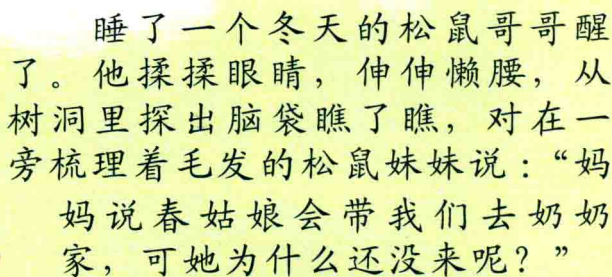 睡了一个冬天的松鼠哥哥醒
了。他揉揉眼睛，伸伸懒腰，从
树洞里探出脑袋瞧了瞧，对在一
旁梳理着毛发的松鼠妹妹说：“妈
妈说春姑娘会带我们去奶奶
家，可她为什么还没来呢？”